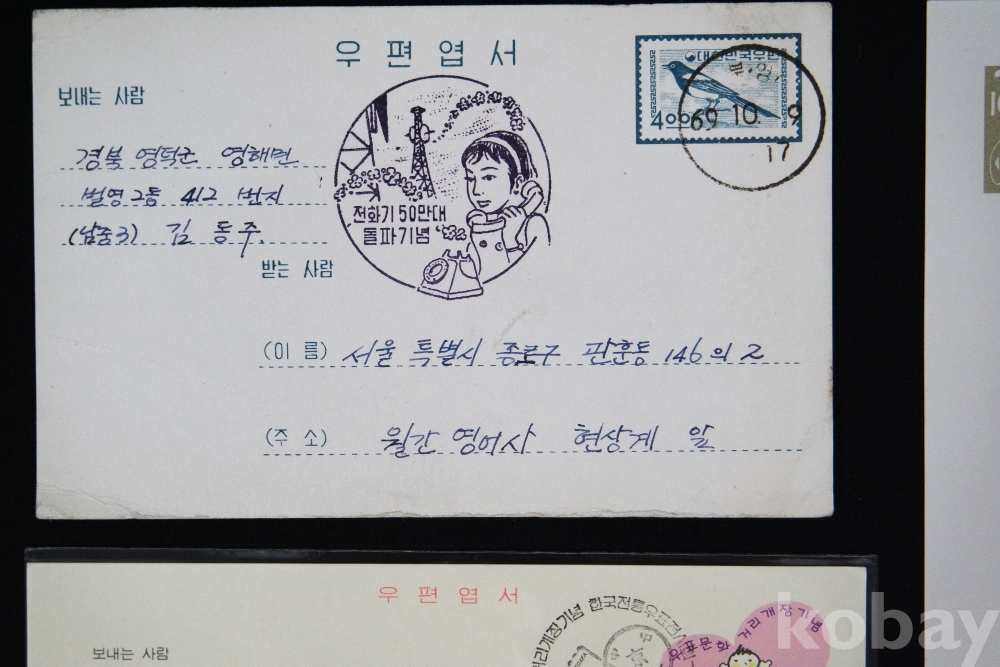 우편엽서
보내는 사람
경북 영덕군 영해면
벌영2동 412 번지
(남중3) 김동주.
대한민국우편
4.00
69.10.9
17
전화기 50만대
돌파기념
받는 사람
(이 름) 서울 특별시 종로구 관훈동 146의 2
(주 소) 월간 영어사 현상계 앞
우편엽서
보내는 사람
거리개장기념 한국전통우표전시
우표문화 거리개장기념
kobay